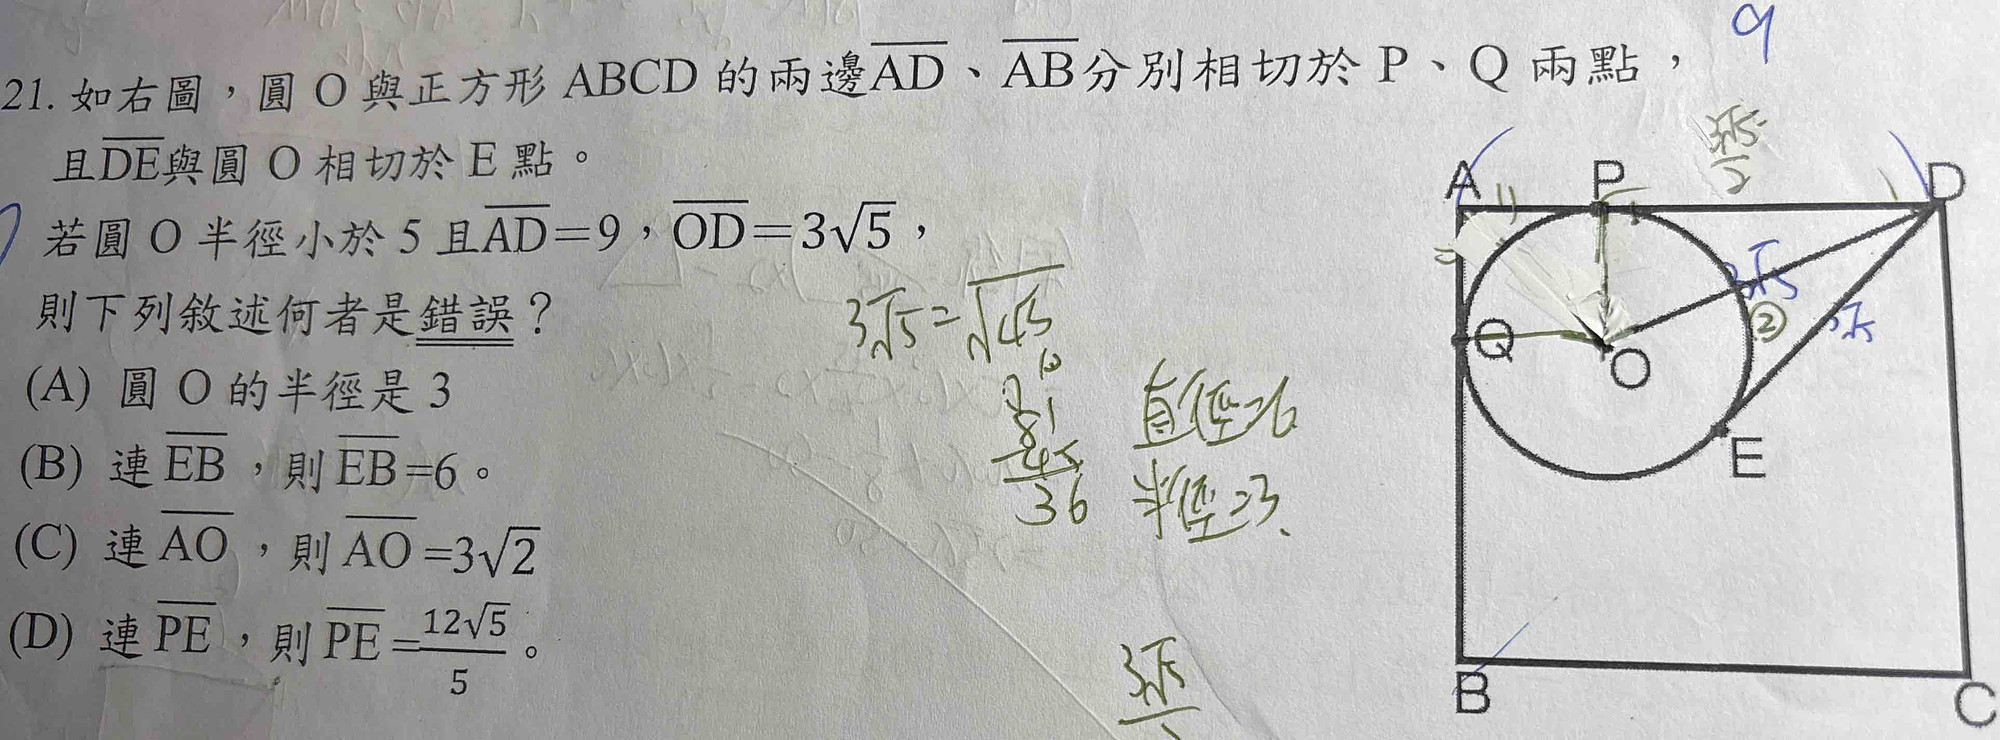 9
21. 如右圖，圓 O 與正方形 ABCD 的兩邊AD、AB分別相切於 P、Q 兩點，
且DE與圓 O 相切於 E 點。
若圓 O 半徑小於 5 且AD=9，OD=3√5，
則下列敘述何者是錯誤？
(A) 圓 O 的半徑是 3
(B) 連 EB，則 EB=6。
(C) 連 AO，則 AO=3√2
(D) 連 PE，則 PE=12√5/5。
3√5=√45
81
45
36
直徑=6
半徑=3
3√5
A P D
3√5
② 
Q O
E
B C